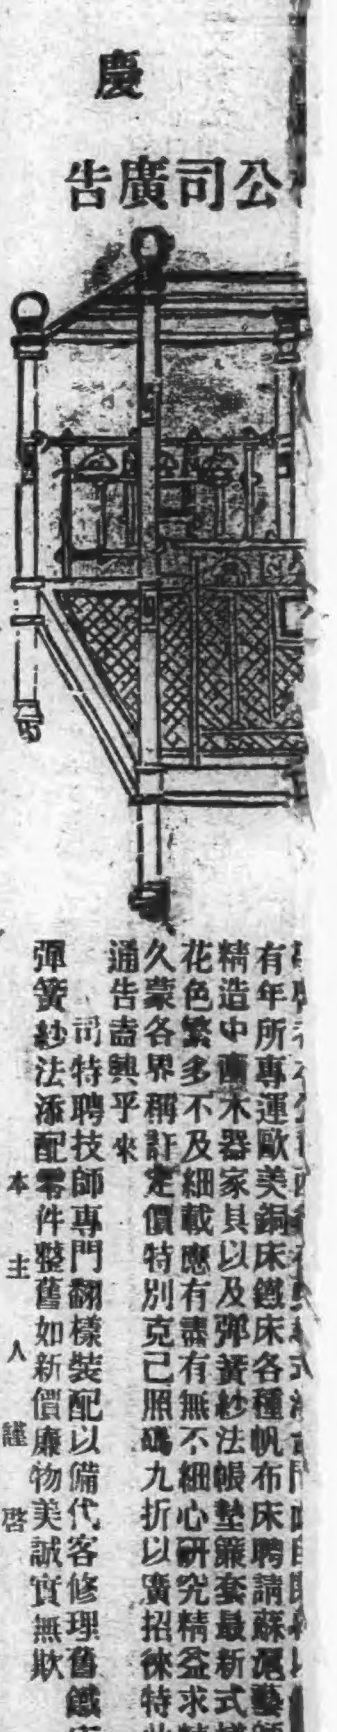 慶
公司廣告
有年所專運歐美銅床鐵床各種帆布床聘請蘇
精造中西木器家具以及彈簧紗法帳墊簾套最新式
花色繁多不及細載應有盡有無不細心研究精益求精
久蒙各界稱許定價特別克己照碼九折以廣招徠特此
通告盍興乎來
司特聘技師專門翻樣裝配以備代客修理舊鐵床
彈簧紗法添配零件整舊如新價廉物美誠實無欺
本主人謹啓